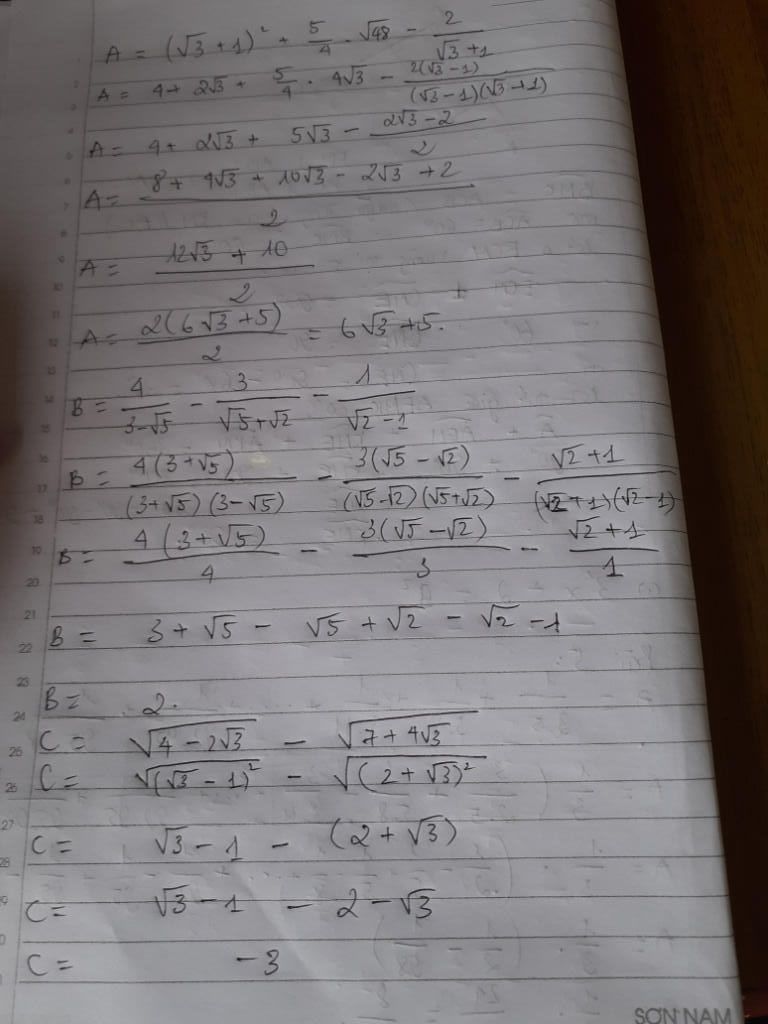 A = (√3 + 1)² + 5/4 . √48 − 2/(√3 + 1)
A = 4 + 2√3 + 5/4 . 4√3 − 2(√3 − 1)/((√3 − 1)(√3 + 1))
A = 4 + 2√3 + 5√3 − (2√3 − 2)/2
A = (8 + 4√3 + 10√3 − 2√3 + 2)/2
A = (12√3 + 10)/2
A = 2(6√3 + 5)/2 = 6√3 + 5.
B = 4/(3 − √5) − 3/(√5 + √2) − 1/(√2 − 1)
B = 4(3 + √5)/((3 + √5)(3 − √5)) − 3(√5 − √2)/((√5 − √2)(√5 + √2)) − (√2 + 1)/((√2 + 1)(√2 − 1))
B = 4(3 + √5)/4 − 3(√5 − √2)/3 − (√2 + 1)/1
B = 3 + √5 − √5 + √2 − √2 − 1
B = 2.
C = √(4 − 2√3) − √(7 + 4√3)
C = √((√3 − 1)²) − √((2 + √3)²)
C = √3 − 1 − (2 + √3)
C = √3 − 1 − 2 − √3
C = −3
SƠN NAM